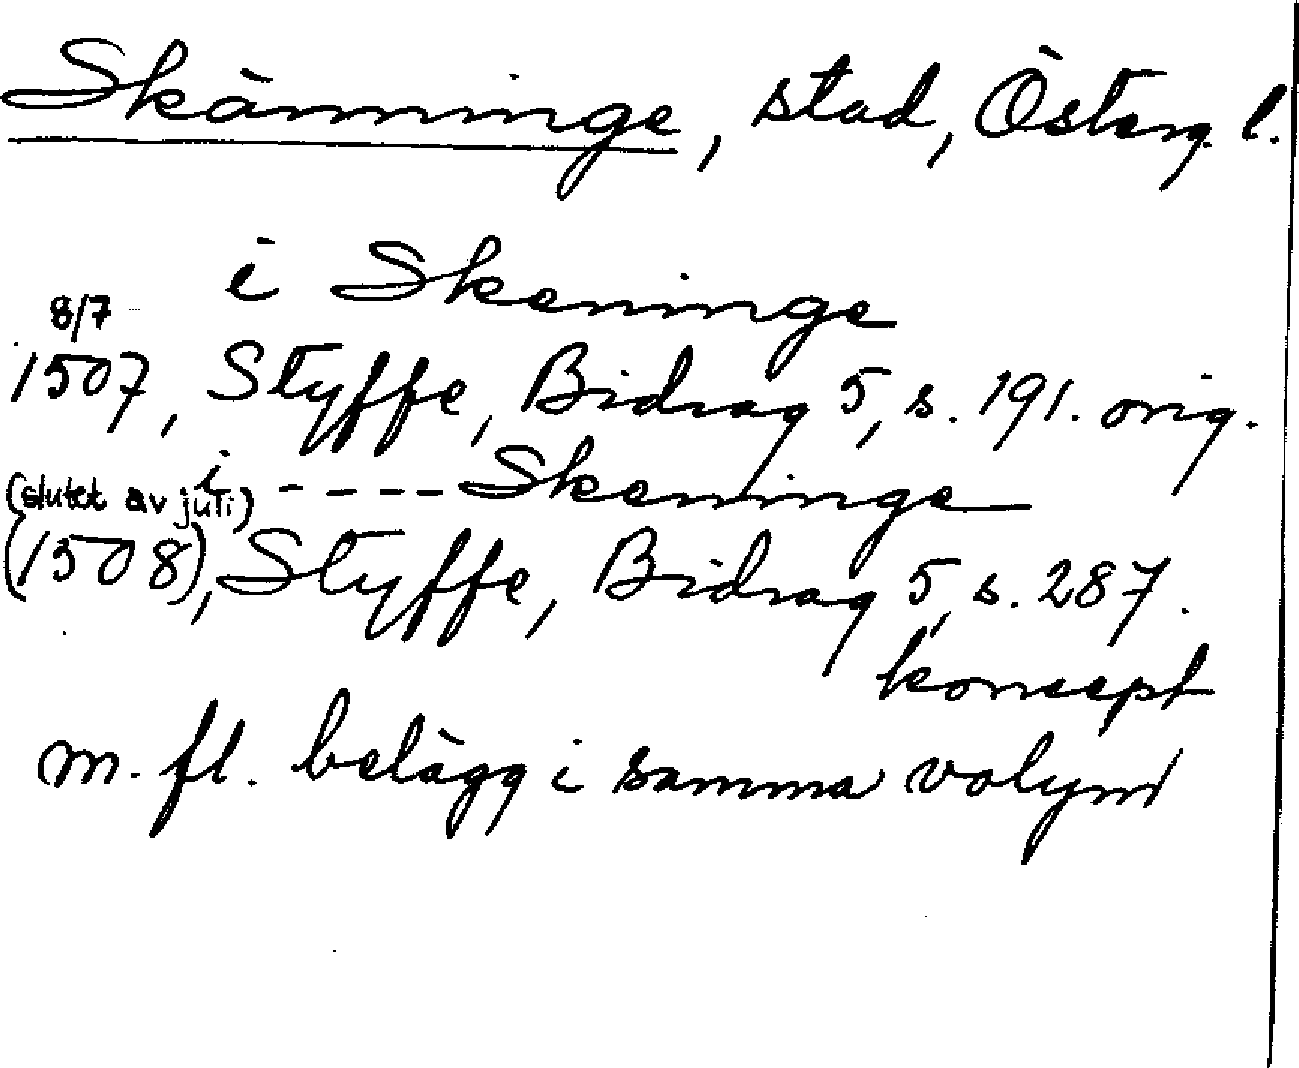 Skänninge, stad, Österg. l.
i Skeninge
8/7
1507, Styffe, Bidrag 5, s. 191. orig.
i - - - - Skeninge
(slutet av juli)
(1508), Styffe, Bidrag 5, s. 287.
koncept
m. fl. belägg i samma volym